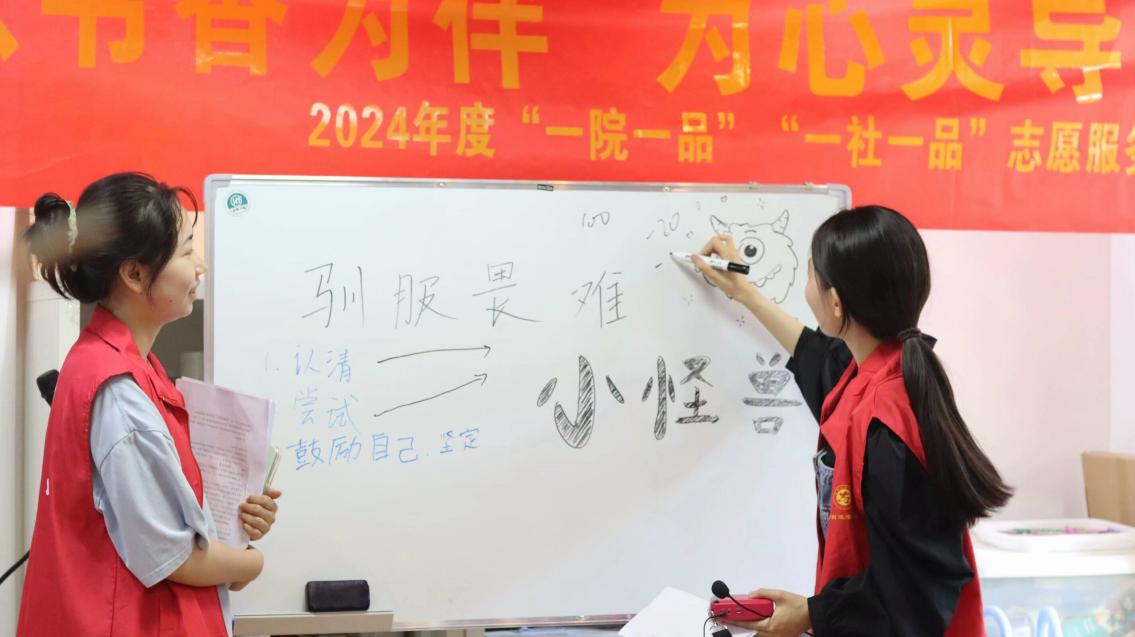 书香为伴 为心灵导
2024年度“一院一品”“一社一品”志愿服务
100 -20
驯服畏难
小怪兽
1. 认清
尝试
鼓励自己.坚定